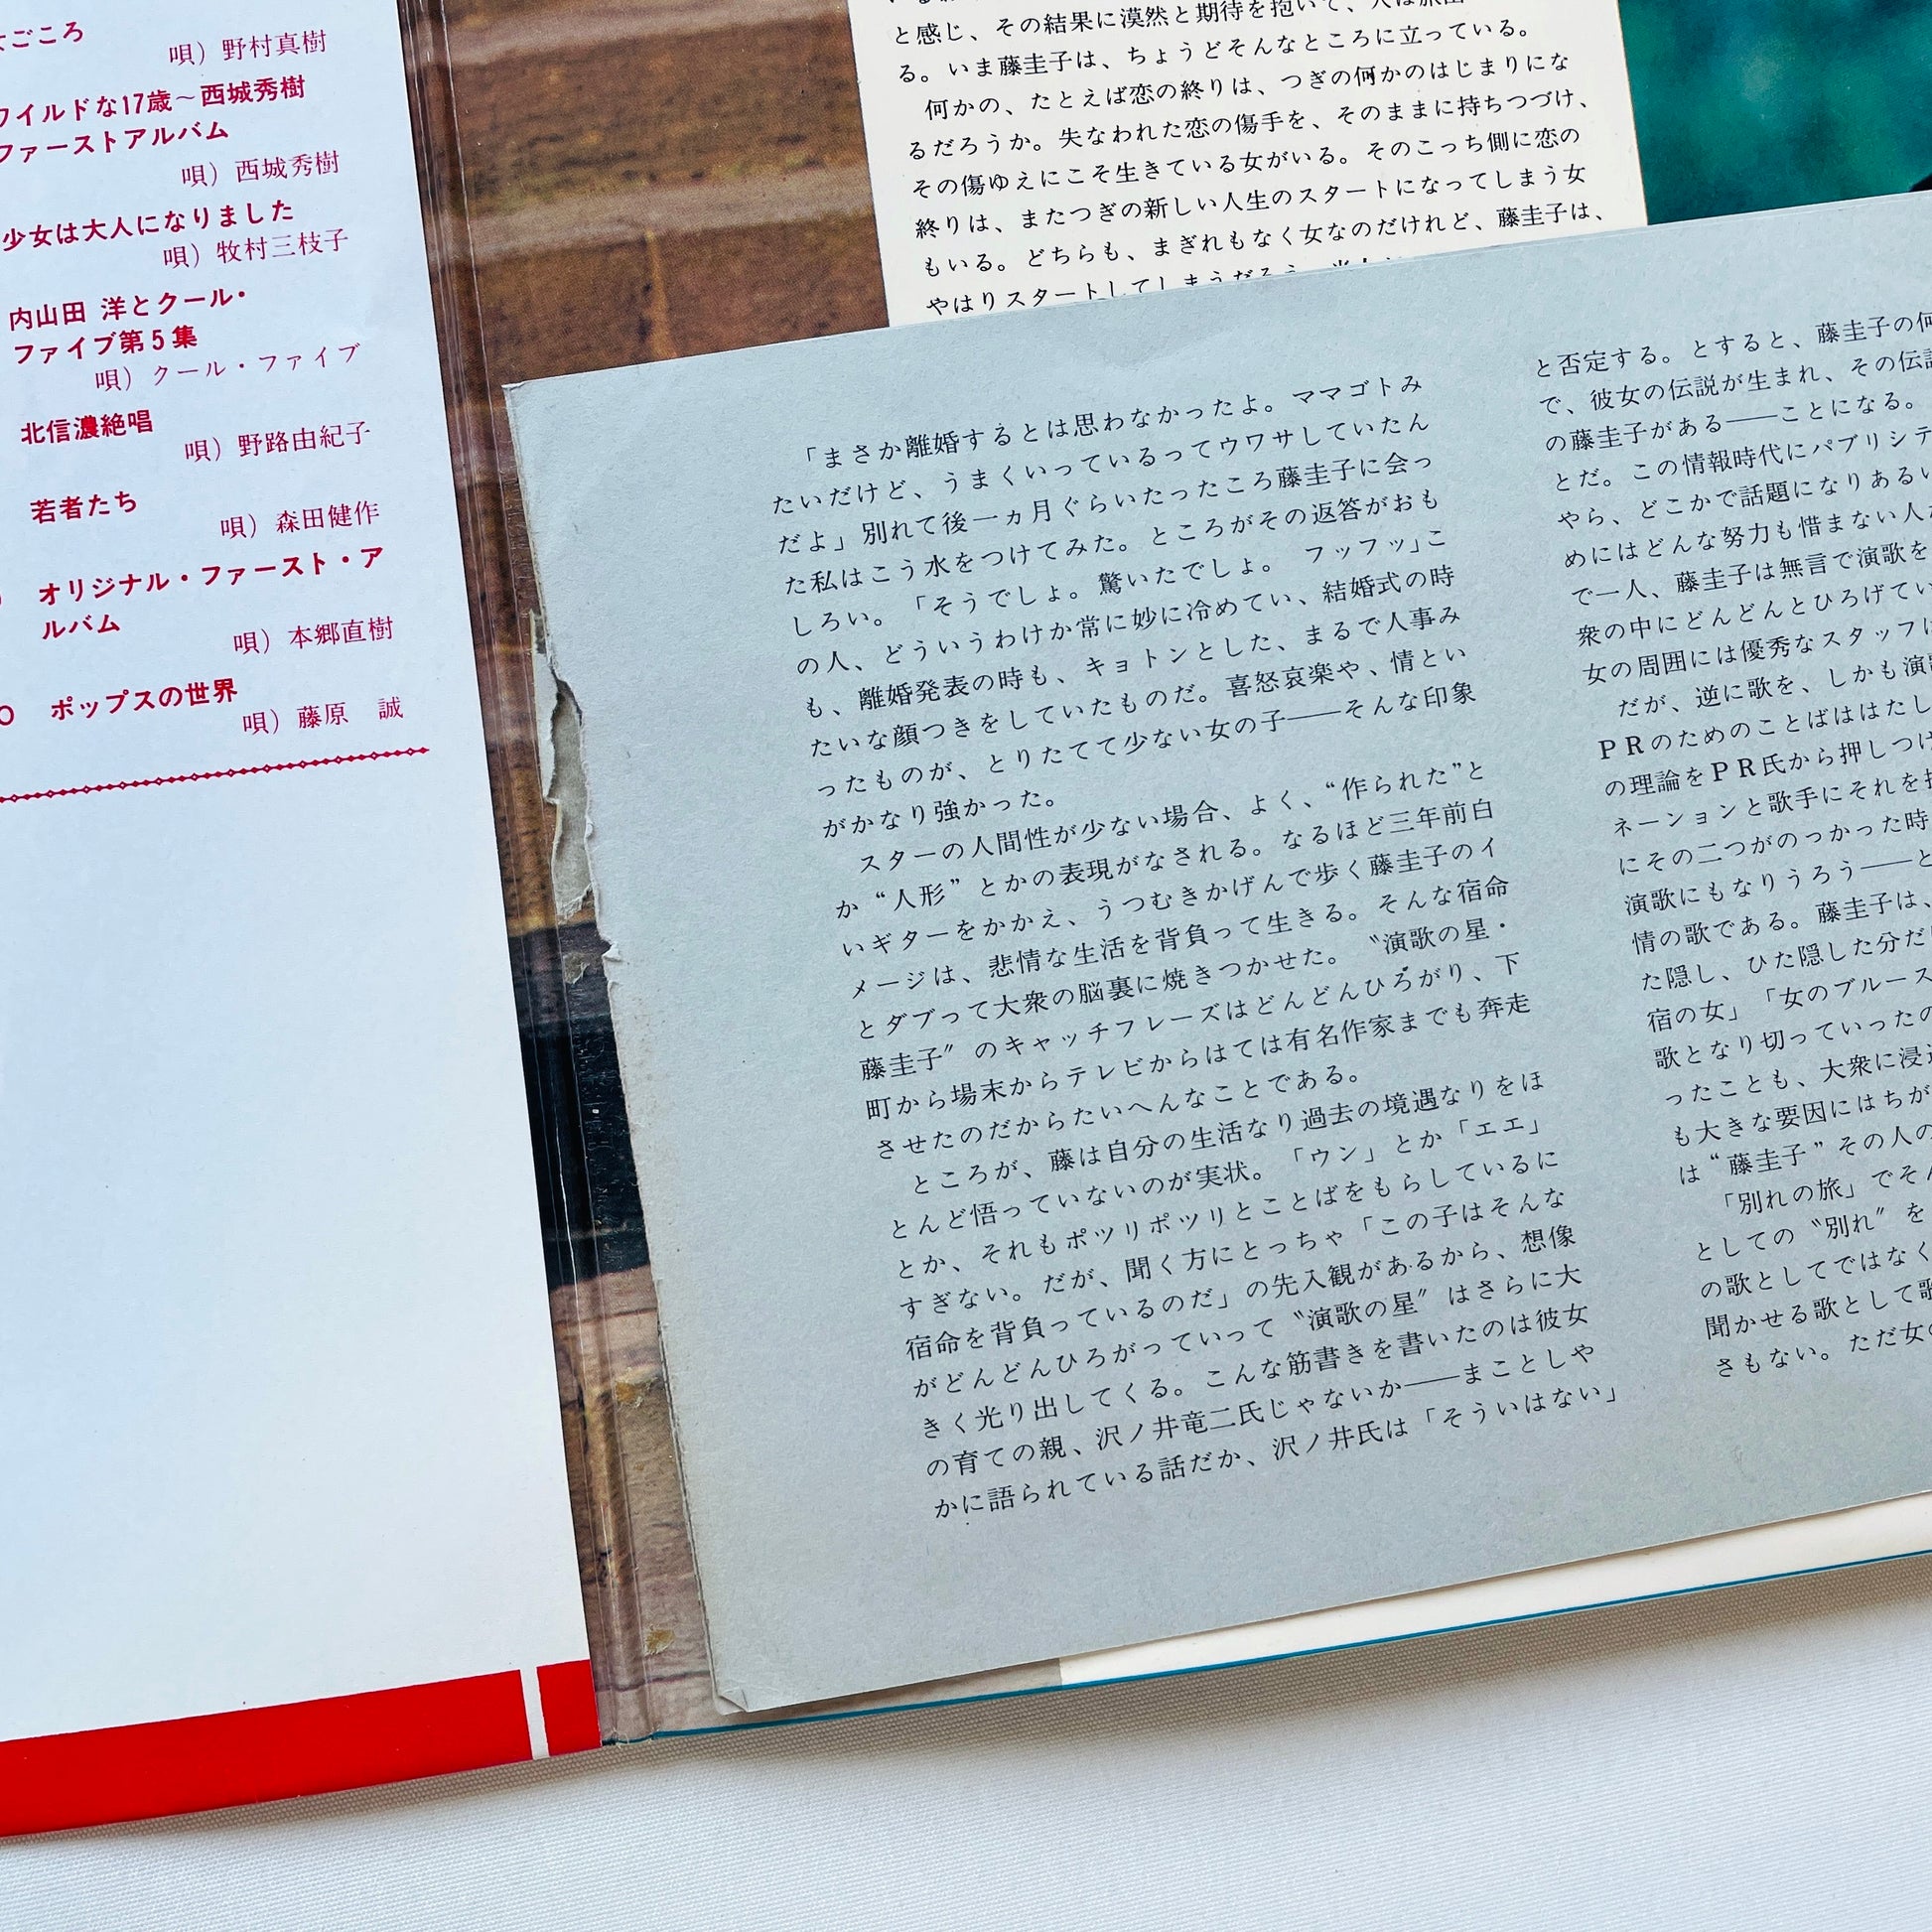 ごころ
唄）野村真樹
ワイルドな17歳～西城秀樹
ファーストアルバム
唄）西城秀樹
少女は大人になりました
唄）牧村三枝子
内山田 洋とクール・
ファイブ第5集
唄）クール・ファイブ
北信濃絶唱
唄）野路由紀子
若者たち
唄）森田健作
オリジナル・ファースト・ア
ルバム
唄）本郷直樹
ポップスの世界
唄）藤原　誠
と感じ、その結果に漠然と期待を抱いて、人は旅出
る。いま藤圭子は、ちょうどそんなところに立っている。
何かの、たとえば恋の終りは、つぎの何かのはじまりにな
るだろうか。失なわれた恋の傷手を、そのままに持ちつづけ、
その傷ゆえにこそ生きている女がいる。そのこっち側に恋の
終りは、またつぎの新しい人生のスタートになってしまう女
もいる。どちらも、まぎれもなく女なのだけれど、藤圭子は、
やはりスタートしてしまうだろう。
「まさか離婚するとは思わなかったよ。ママゴトみ
たいだけど、うまくいっているってウワサしていたん
だよ」別れて後一ヵ月ぐらいたったころ藤圭子に会っ
た私はこう水をつけてみた。ところがその返答がおも
しろい。「そうでしょ。驚いたでしょ。フッフッ」こ
の人、どういうわけか常に妙に冷めてい、結婚式の時
も、離婚発表の時も、キョトンとした、まるで人事み
たいな顔つきをしていたものだ。喜怒哀楽や、情とい
ったものが、とりたてて少ない女の子――そんな印象
がかなり強かった。
スターの人間性が少ない場合、よく、“作られた”と
か“人形”とかの表現がなされる。なるほど三年前白
いギターをかかえ、うつむきかげんで歩く藤圭子のイ
メージは、悲惨な生活を背負って生きる。そんな宿命
とダブって大衆の脳裏に焼きつかせた。〝演歌の星・
藤圭子〞のキャッチフレーズはどんどんひろがり、下
町から場末からテレビからはては有名作家までも奔走
させたのだからたいへんなことである。
ところが、藤は自分の生活なり過去の境遇なりをほ
とんど悟っていないのが実状。「ウン」とか「エエ」
とか、それもポツリポツリとことばをもらしているに
すぎない。だが、聞く方にとっちゃ「この子はそんな
宿命を背負っているのだ」の先入観があるから、想像
がどんどんひろがっていって〝演歌の星〞はさらに大
きく光り出してくる。こんな筋書きを書いたのは彼女
の育ての親、沢ノ井竜二氏じゃないか――まことしや
かに語られている話だか、沢ノ井氏は「そういはない」
と否定する。とすると、藤圭子の何
で、彼女の伝説が生まれ、その伝説
の藤圭子がある――ことになる。
とだ。この情報時代にパブリシテ
やら、どこかで話題になりあるい
めにはどんな努力も惜まない人
で一人、藤圭子は無言で演歌を
衆の中にどんどんとひろげてい
女の周囲には優秀なスタッフ
だが、逆に歌を、しかも演
PRのためのことばははたし
の理論をPR氏から押しつけ
ネーションと歌手にそれを
にその二つがのっかった時
演歌にもなりうろう――と
情の歌である。藤圭子は、
た隠し、ひた隠した分だ
宿の女」「女のブルース
歌となり切っていったの
ったことも、大衆に浸
も大きな要因にはちが
は“藤圭子”その人の
「別れの旅」でそん
としての〝別れ〞を
の歌としてではなく
聞かせる歌として
さもない。ただ女